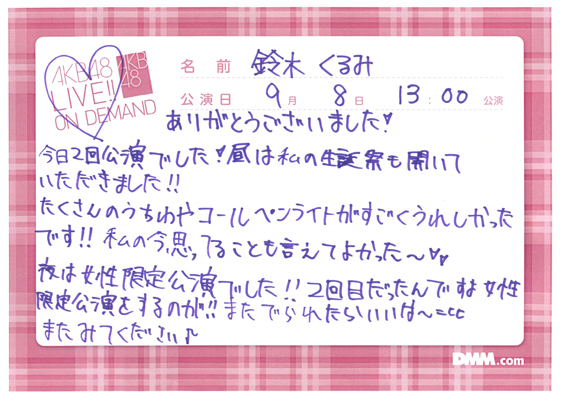 AKB48
LIVE!!
ON DEMAND
AKB
48
名前 鈴木 くるみ
公演日 9月 8日 13:00 公演
ありがとうございました!
今日2回公演でした!昼は私の生誕祭も開いて
いただきました!!
たくさんのうちわやコールペンライトがすごくうれしかった
です!!私の今、思ってることも言えてよかった〜♥♥
夜は女性限定公演でした!!2回目だったんですよ女性
限定公演をするのが!!またでられたらいいな〜
またみてください♪
DMM.com